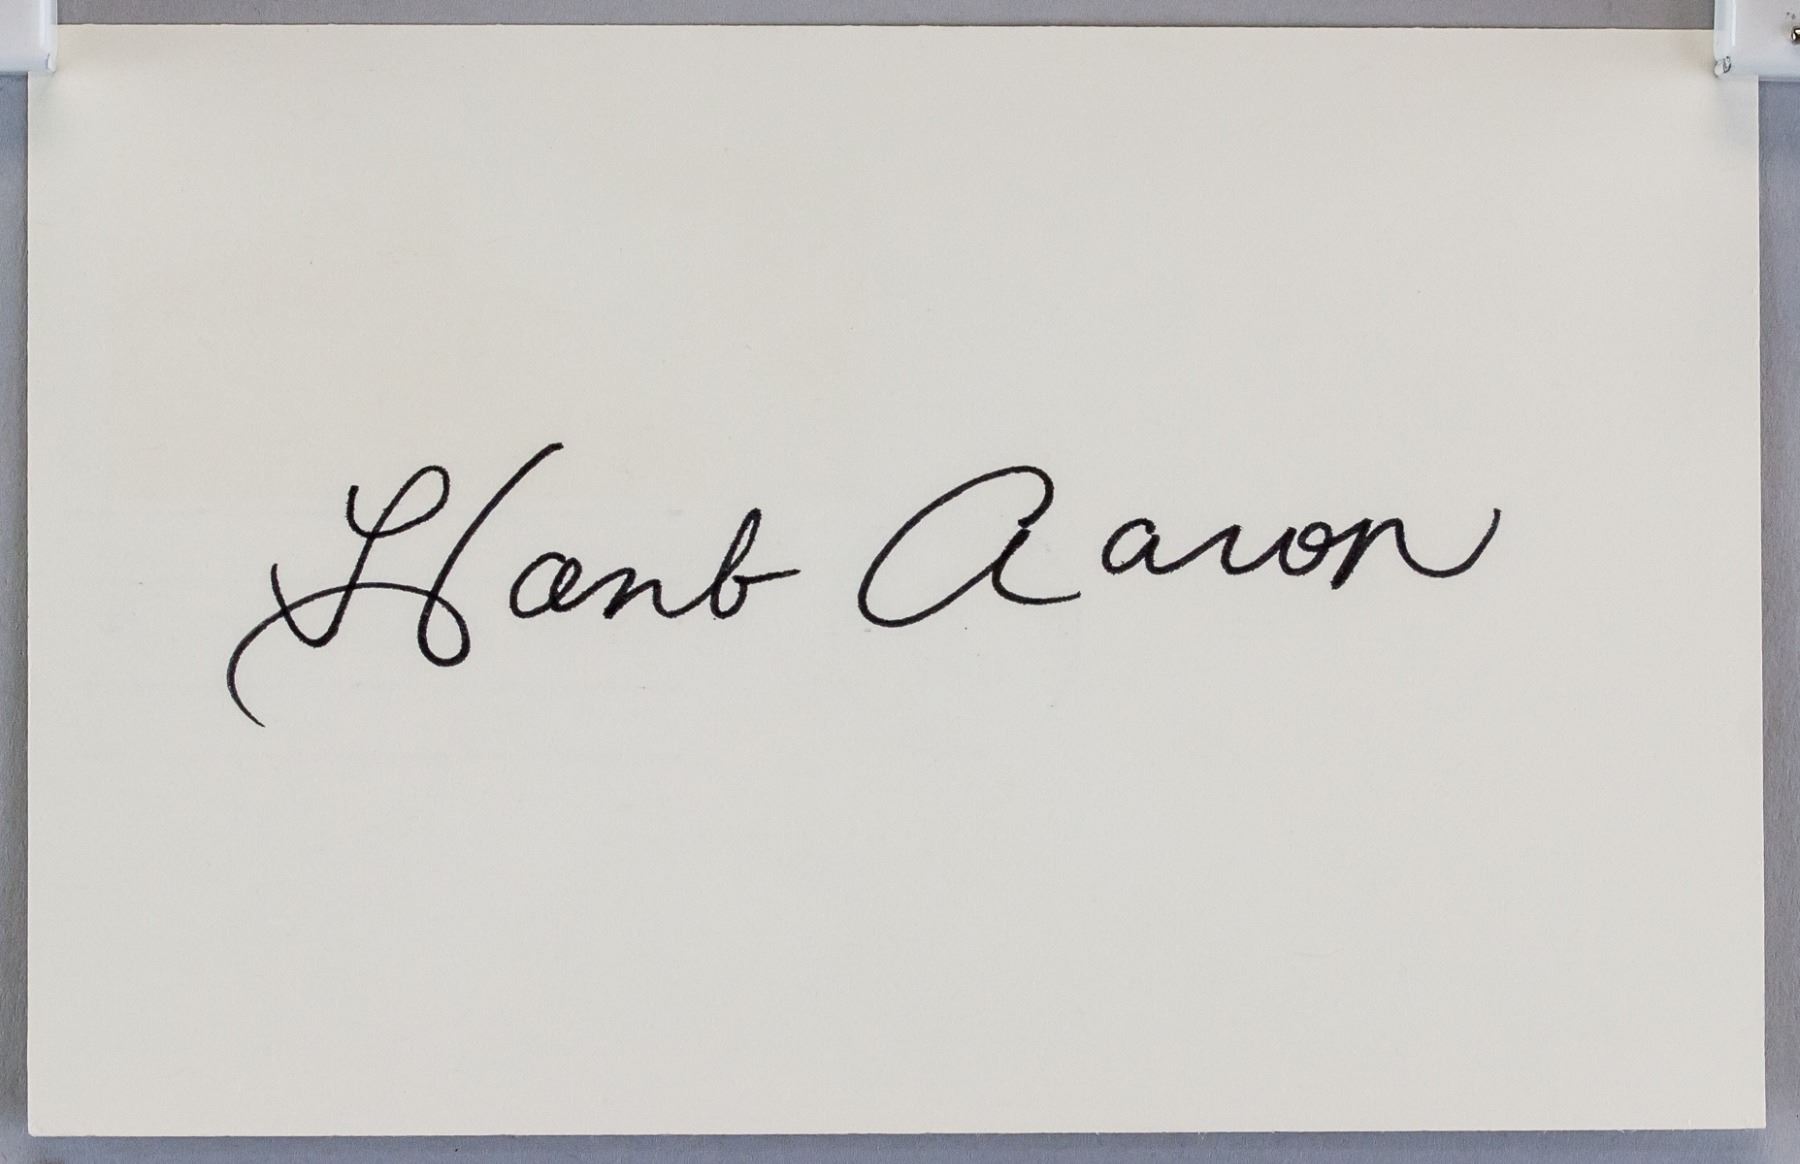 Hank Aaron